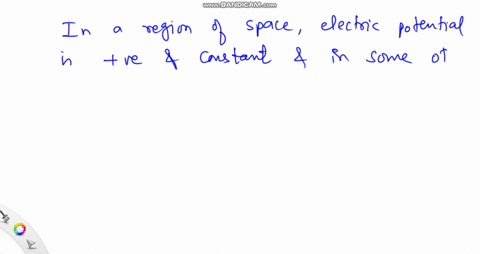 WWW.BANDICAM.COM
In a region of space, electric potential
is +ve & constant & in some ot